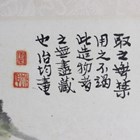 取之無禁
用之不竭
此造物者
之無盡藏
也治均畫